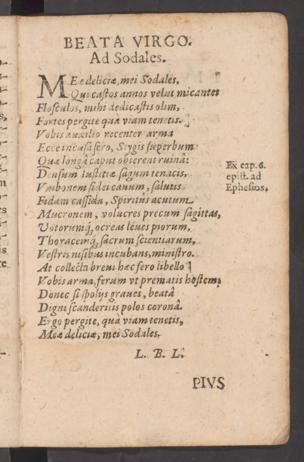 BEATA VIRGO.
Ad Sodales.
MEæ deliciæ, mei Sodales,
Qui castos annos velut micantes
Flosculos, mihi dedicastis olim,
Fortes pergite quà viam tenetis.
Vobis auxilio recenter arma
Ecce incusa fero, Stygis superbum
Quæ longâ caput obterent ruinâ:
Densum iustitiæ sagum tenacis,
Vmbonem fidei cauum, salutis
Fidam cassida, Spiritus acutum
Mucronem, volucres precum sagittas,
Votorumq́; ocreas leues piorum,
Thoracemq́; sacrum scientiarum,
Vestris nisibus incubans, ministro.
At collecta breui hæc fero libello
Vobis arma, feram vt prematis hostem;
Donec si spolijs graues, beatâ
Digni scanderitis polos coronâ.
Ergo pergite, quà viam tenetis,
Meæ deliciæ, mei Sodales.
L. B. L.
Ex cap. 6.
epist. ad
Ephesios.
PIVS